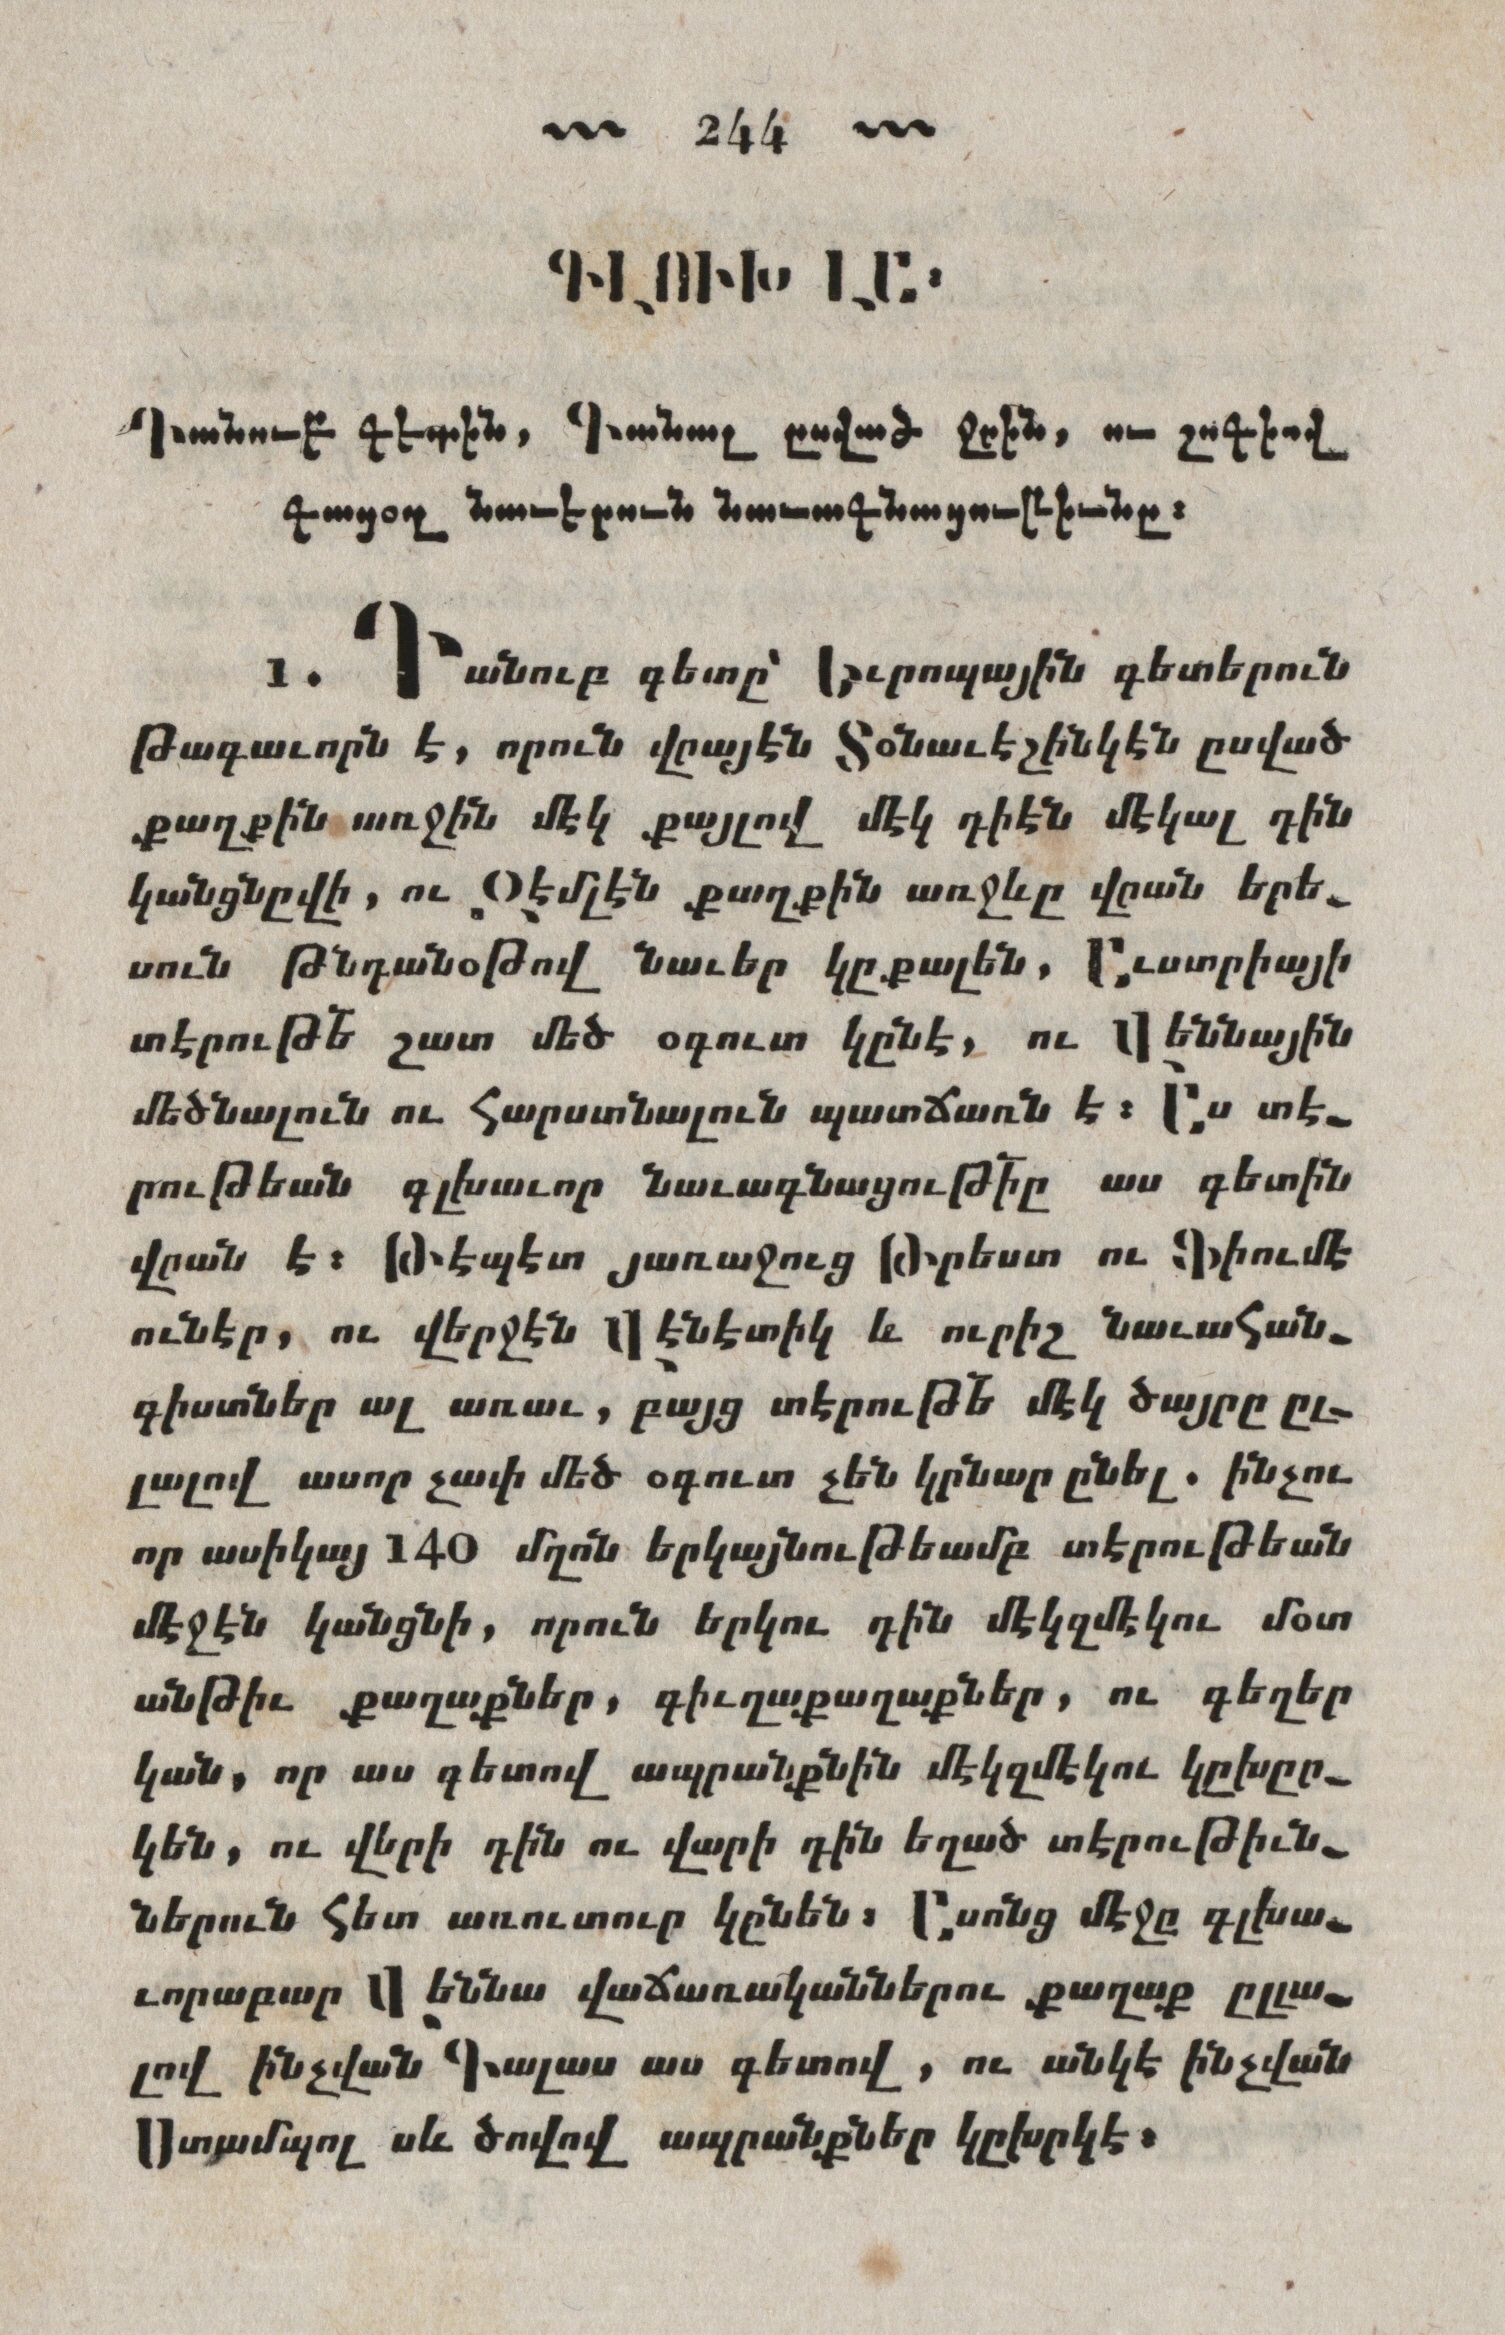 244
ԳԼՈՒԽ ԼԸ։
Դանուբ գետին, Գանալ ըսված ջրին, ու շոգիով
գացօղ նաւէրուն նաւագնացութիւնը։
1. Դանուբ գետը՝ Եւրոպային գետերուն
թագաւորն է, որուն վրայէն Տօնաւէշինկէն ըսված
քաղքին առջին մէկ քայլով մէկ դիէն մէկալ դին
կանցնըվի, ու Զէմլէն քաղքին առջևը վրան երե-
սուն թնդանօթով նաւեր կըքալեն, Աւստրիայի
տէրութե շատ մեծ օգուտ կընէ, ու Վեննային
մեծնալուն ու հարստնալուն պատճառն է։ Աս տէ-
րութեան գլխաւոր նաւագնացութիը աս գետին
վրան է։ Թէպէտ յառաջուց Թրեստ ու Ֆիումէ
ունէր, ու վերջէն Վէնէտիկ և ուրիշ նաւահան-
գիստներ ալ առաւ, բայց տէրութե մէկ ծայրը ըլ-
լալով ասոր չափ մեծ օգուտ չեն կրնար ընել. ինչու
որ ասիկայ 140 մղոն երկայնութեամբ տէրութեան
մէջէն կանցնի, որուն երկու դին մէկզմէկու մօտ
անթիւ քաղաքներ, գիւղաքաղաքներ, ու գեղեր
կան, որ աս գետով ապրանքնին մէկզմէկու կըխըր-
կեն, ու վերի դին ու վարի դին եղած տէրութիւն-
ներուն հետ առուտուր կընեն։ Ասոնց մէջը գլխա-
ւորաբար Վեննա վաճառականներու քաղաք ըլլա-
լով ինչվան Գալաս աս գետով, ու անկէ ինչվան
Ստամպոլ սև ծովով ապրանքներ կըխրկէ։